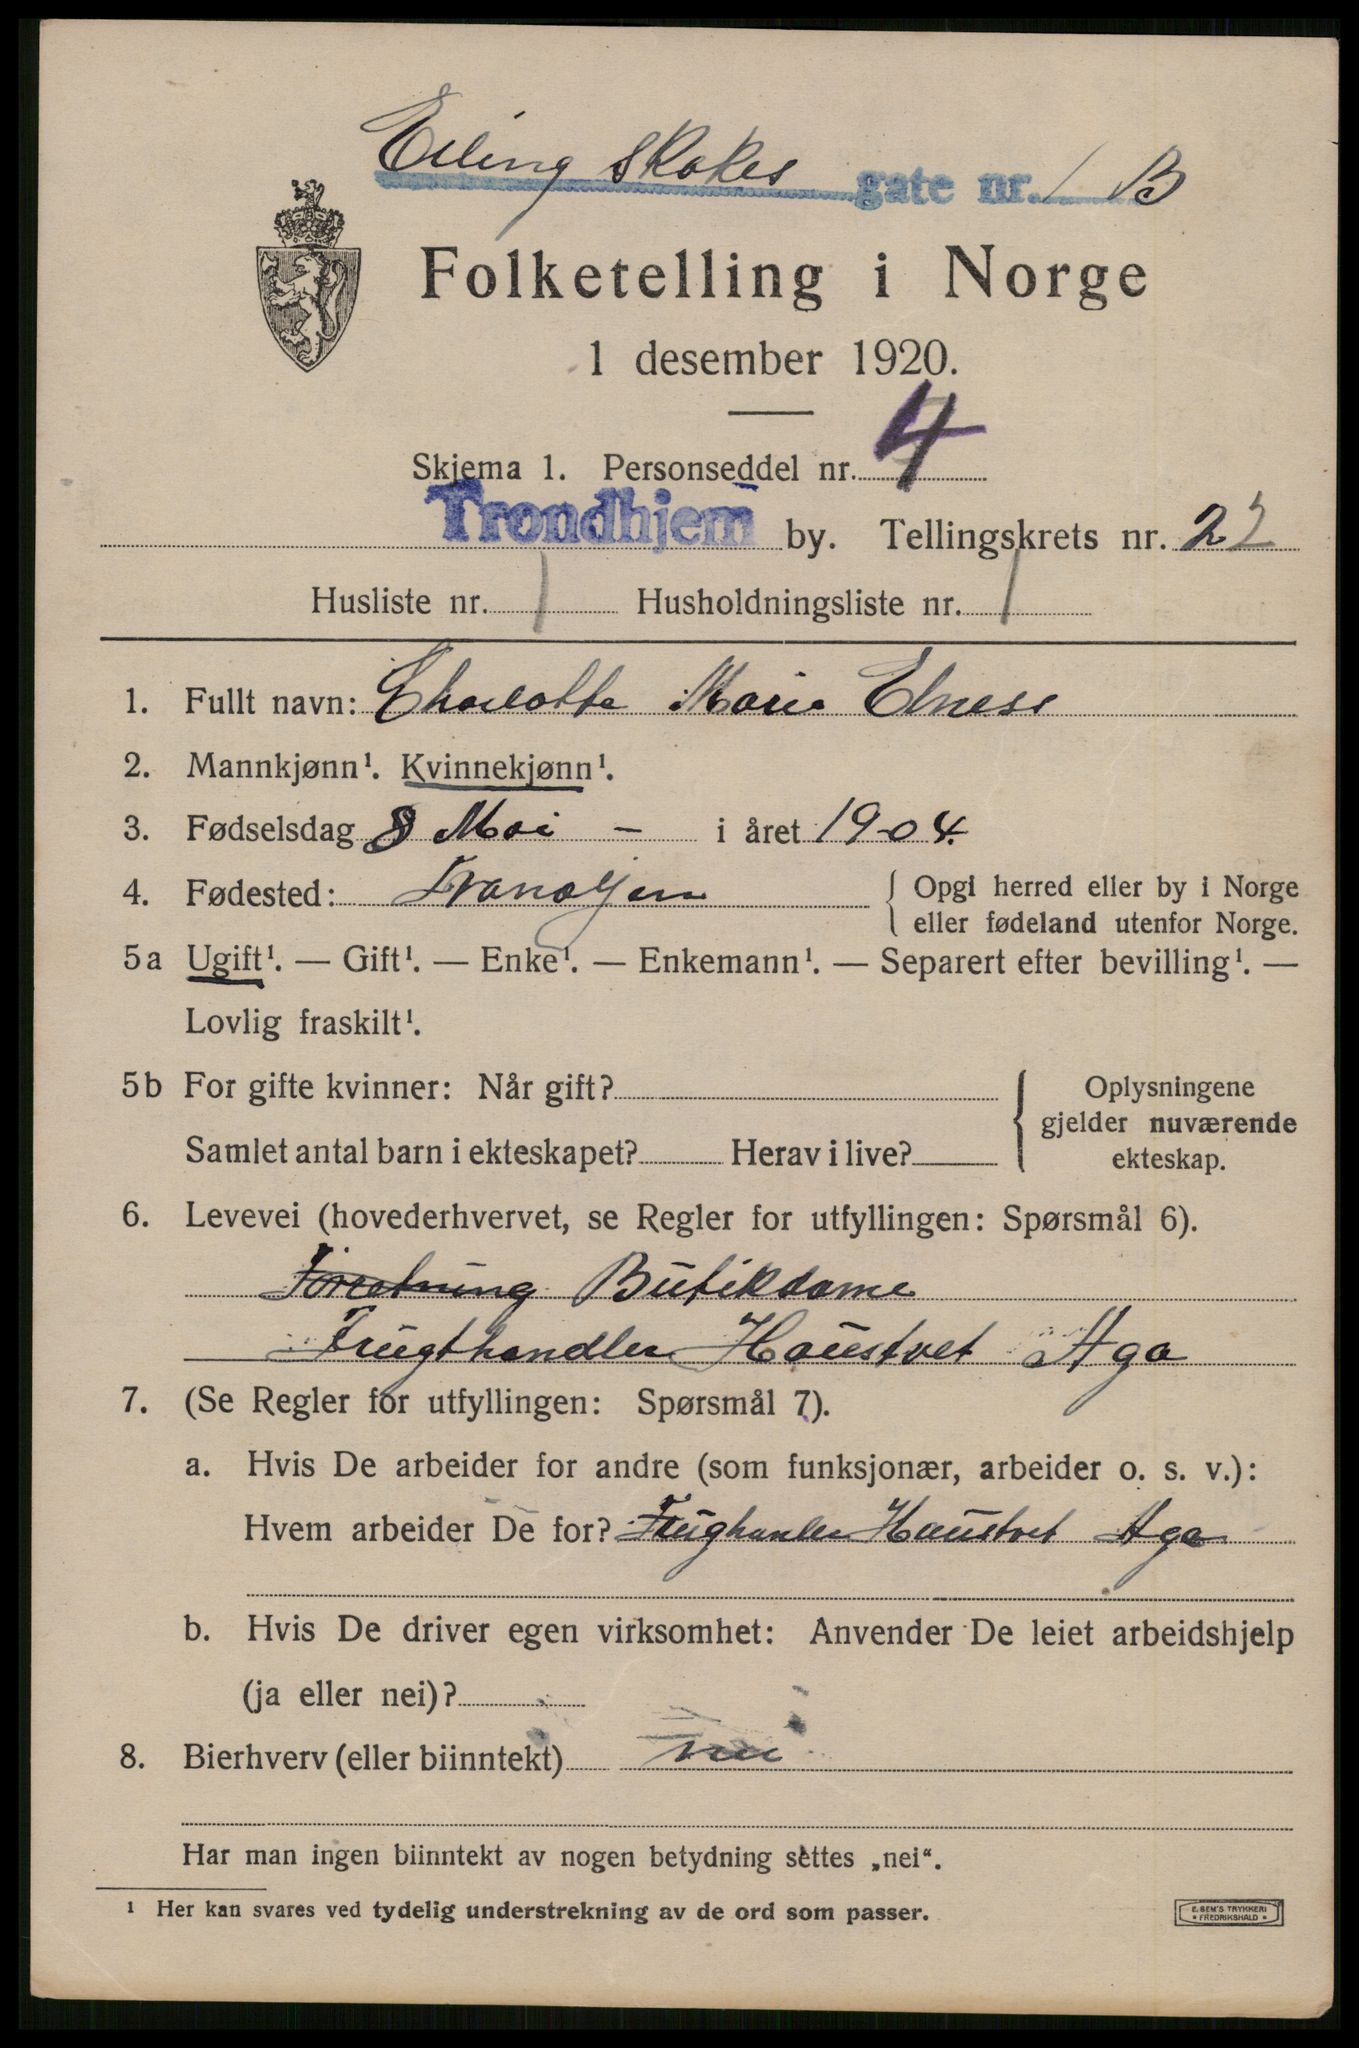 Erling Skakes gate nr. 1 B
Folketelling i Norge
1 desember 1920.
Skjema 1. Personseddel nr. 4
Trondhjem by. Tellingskrets nr. 22
Husliste nr. 1 Husholdningsliste nr. 1
1. Fullt navn: Charlotte Marie Elness
2. Mannkjønn¹. Kvinnekjønn¹.
3. Fødselsdag 8 Mai – i året 1904.
4. Fødested: { Opgi herred eller by i Norge
eller fødeland utenfor Norge.
5a Ugift¹. — Gift¹. — Enke¹. — Enkemann¹. — Separert efter bevilling¹. —
Lovlig fraskilt¹.
5b For gifte kvinner: Når gift? { Oplysningene
gjelder nuværende
Samlet antal barn i ekteskapet? Herav i live? ekteskap.
6. Levevei (hovederhvervet, se Regler for utfyllingen: Spørsmål 6).
Forretning Butikdame
Frugthandler Haustvet Aga
7. (Se Regler for utfyllingen: Spørsmål 7).
a. Hvis De arbeider for andre (som funksjonær, arbeider o. s. v.):
Hvem arbeider De for? Frughanler Haustvet Aga
b. Hvis De driver egen virksomhet: Anvender De leiet arbeidshjelp
(ja eller nei)?
8. Bierhverv (eller biinntekt) nei
Har man ingen biinntekt av nogen betydning settes „nei“.
¹ Her kan svares ved tydelig understrekning av de ord som passer.
E. SEM'S TRYKKERI
FREDRIKSHALD